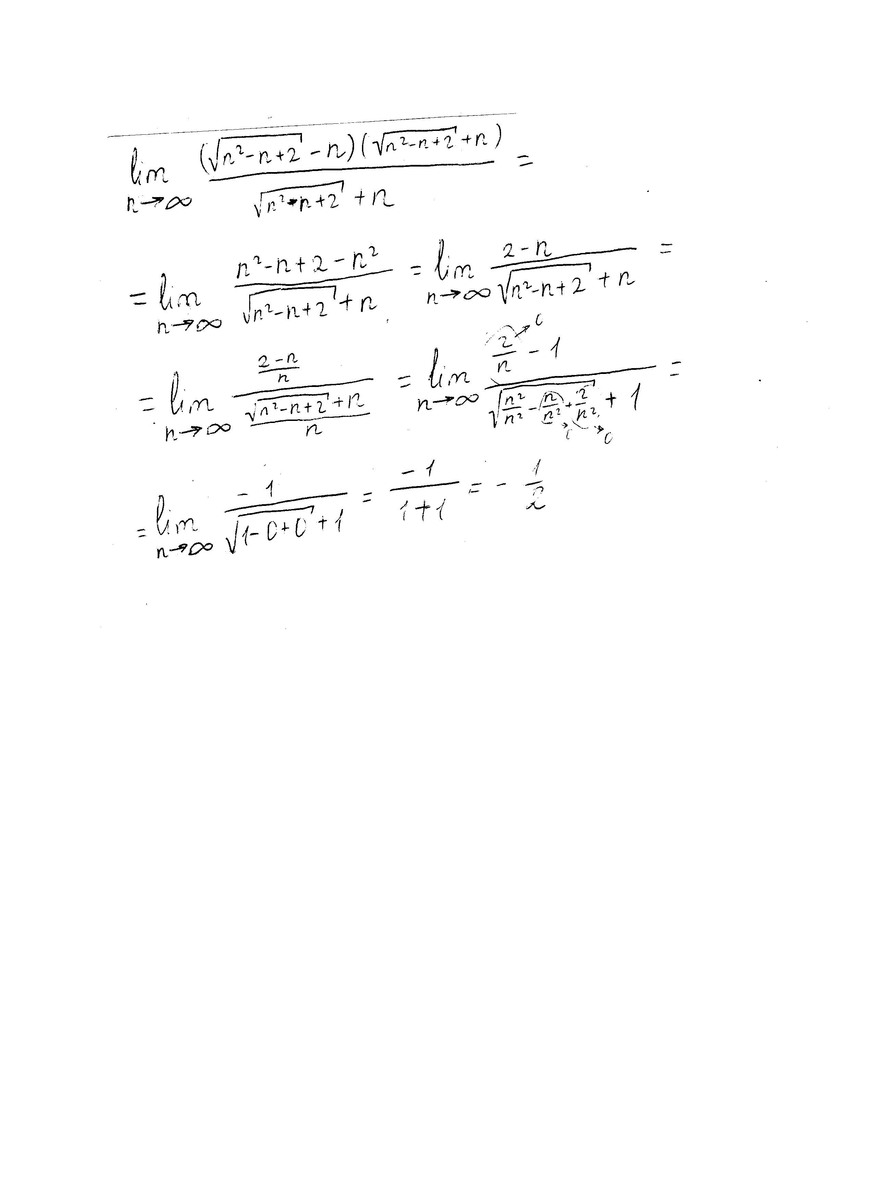 lim n→∞ (√(n²-n+2) - n)(√(n²-n+2) + n) / (√(n²-n+2) + n) =
= lim n→∞ (n²-n+2-n²) / (√(n²-n+2) + n) = lim n→∞ (2-n) / (√(n²-n+2) + n) =
= lim n→∞ ((2-n)/n) / ((√(n²-n+2) + n)/n) = lim n→∞ (2/n →0 - 1) / (√(n²/n² - n/n² →0 + 2/n² →0) + 1) =
= lim n→∞ -1 / (√(1-0+0) + 1) = -1 / (1+1) = - 1/2